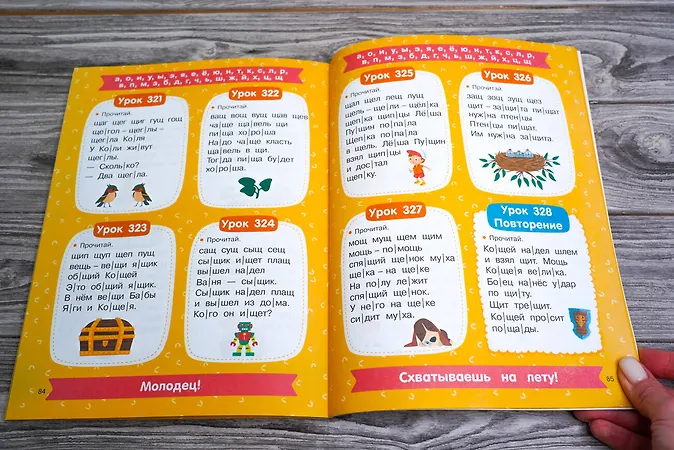 а, о, и, у, ы, э, я, е, ё, ю, н, т, к, с, л, р,
в, п, м, з, б, д, г, ч, ь, ш, ж, й, х, ц, щ
Урок 321
Прочитай.
щаг щег щиг гущ гощ
ще|гол – щег|лы –
щег|ла Ко|ля
У Ко|ли жи|вут
щег|лы.
— Сколь|ко?
— Два щег|ла.
Урок 322
Прочитай.
ващ вощ вущ щав щев
ча|ще ща|вель щи
пи|ща хо|ро|ша
На|до ча|ще класть
ща|вель в щи.
Тог|да пи|ща бу|дет
хо|ро|ша.
Урок 323
Прочитай.
щип щуп щеп пущ
вещь – ве|щи я|щик
об|щий Ко|щей
Э|то об|щий я|щик.
В нём ве|щи Ба|бы
Я|ги и Ко|ще|я.
Урок 324
Прочитай.
сащ сущ сыщ сещ
сы|щик и|щет плащ
вы|шел на|дел
Ва|ня — сы|щик.
Сы|щик на|дел плащ
и вы|шел из до|ма.
Ко|го он и|щет?
84
Молодец!
а, о, и, у, ы, э, я, е, ё, ю, н, т, к, с, л, р,
в, п, м, з, б, д, г, ч, ь, ш, ж, й, х, ц, щ
Урок 325
Прочитай.
щал щел лещ лущ
щель – ще|ли – щел|ка
щеп|ка щип|цы Лё|ша
Пу|щин по|па|ла
Щеп|ка по|па|ла
в щель. Лё|ша Пу|щин
взял щип|цы
и дос|тал
щеп|ку.
Урок 326
Прочитай.
защ зощ зущ щез
щит – за|щи|та пи|щат
нуж|на птен|цы
Птен|цы пи|щат.
Им нуж|на за|щи|та.
Урок 327
Прочитай.
мощ мущ щем щим
мощь – по|мощь
спя|щий ще|нок му|ха
ще|ка – на ще|ке
На по|лу ле|жит
спя|щий ще|нок.
У не|го на ще|ке
си|дит му|ха.
Урок 328
Повторение
Прочитай.
Ко|щей на|дел шлем
и взял щит. Мощь
Ко|ще|я ве|ли|ка.
Бо|ец на|нёс у|дар
по щи|ту.
Щит тре|щит.
Ко|щей про|сит
по|ща|ды.
Схватываешь на лету!
85